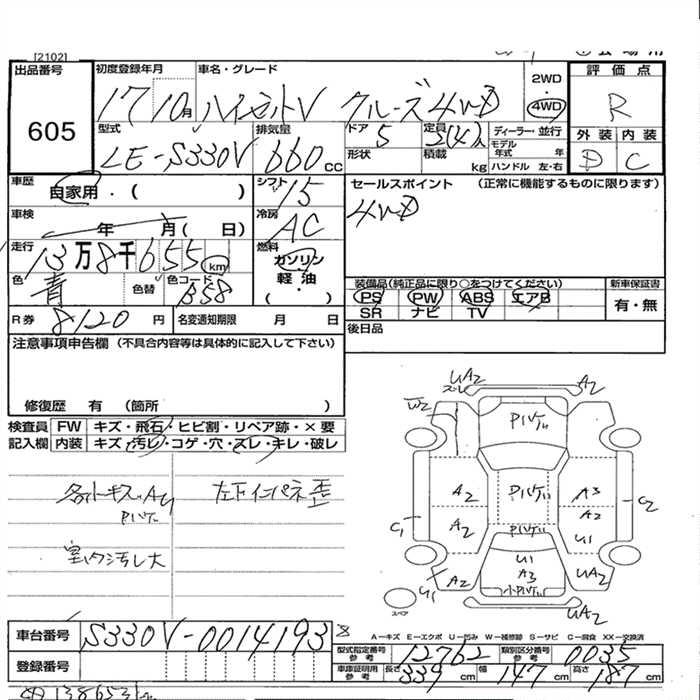 [2102]
出品番号
605
初度登録年月
17 10月
車名・グレード
ハイゼットV クルーズ 4WD
2WD
・
4WD
評価点
R
型式
LE-S330V
排気量
660 cc
ドア
5
形状
定員
2(4)人
積載
kg
ディーラー・並行
モデル年式 年
ハンドル 左・右
外装 内装
D C
車歴
自家用・( )
シフト
I5
セールスポイント (正常に機能するものに限ります)
4WD
車検
年 月( 日)
冷房
AC
走行
13万8千655km
燃料
ガソリン
軽油
( ・ )
色
青
色替
色コード
B58
装備品(純正品に限り○をつけてください)
PS PW ABS エアB
SR ナビ TV
新車保証書
有・無
R券 8120 円
名変通知期限 月 日
後日品
注意事項申告欄 (不具合内容等は具体的に記入して下さい)
修復歴 有 (箇所 )
検査員 FW キズ・飛石・ヒビ割・リペア跡・×要
記入欄 内装 キズ・汚レ・コゲ・穴・スレ・キレ・破レ
左下インパネ歪
室内汚レ大
UA2
スレ
A2
W2
A2
A2
A3
A2
U1
C1
C2
U1
A2
U1
A3
UA2
UA2
スペア
A-キズ E-エクボ U-凹み W-補修跡 S-サビ C-腐食 XX-交換済
車台番号 S330V-0014193
8
型式指定番号 参考 12762
類別区分番号 参考 0035
登録番号
車庫証明用 参考 長さ 339 cm 幅 147 cm 高さ 187 cm